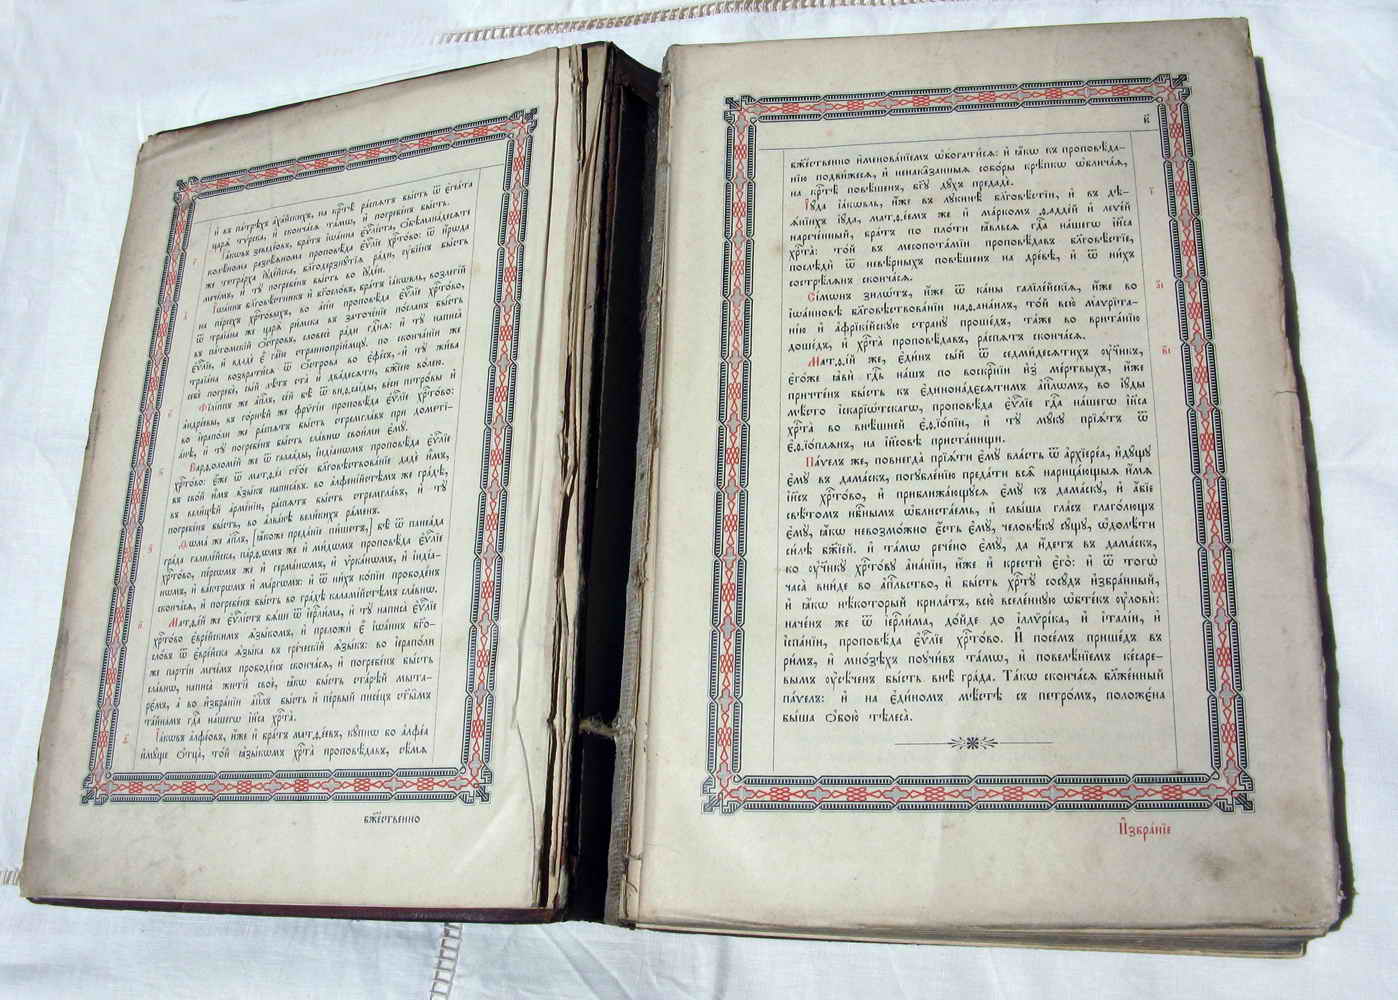 и҆ въ па́трѣхъ а҆ха́йскихъ, на крⷭ҇тѣ̀ распѧ́тъ бы́сть ѿ є҆гєа́та
царѧ̀ ту́рска, и҆ сконча́сѧ та́мѡ, и҆ погребе́нъ бы́сть.
І҆а́кѡвъ зеведе́овъ, бра́тъ і҆ѡа́нна є҆ѵⷢ҇лі́ста, ѻ҆бѣма́надесѧте
колѣ́нома разсѣ́ѧнома проповѣ́да є҆ѵⷢ҇лїе хрⷭ҇то́во: ѿ и҆́рѡда
же тетра́рха і҆ꙋде́йска, благодерзнове́нїѧ ра́ди, ᲂу҆бїе́нъ бы́сть
мече́мъ, и҆ тꙋ̀ погребе́нъ бы́сть во і҆ꙋде́и.
І҆ѡа́ннъ бл҃говѣ́стникъ и҆ бг҃осло́въ, бра́тъ і҆а́кѡвль, возлегі́й
на пе́рсехъ хрⷭ҇то́выхъ, во а҆сі́и проповѣ́да є҆ѵⷢ҇лїе хрⷭ҇то́во,
ѿ траїа́на же царѧ̀ ри́мска въ заточе́нїе по́сланъ бы́сть
въ па́томскїй ѻ҆́стровъ, словесѐ ра́ди гдⷭ҇нѧ: и҆ тꙋ̀ написа̀
є҆ѵⷢ҇лїе, и҆ вдадѐ є҆̀ га́їю страннопрїи́мцꙋ. по сконча́нїи же
траїа́на возврати́сѧ ѿ ѻ҆́строва во є҆фе́съ, и҆ тꙋ̀ жи́ва
себѐ погребѐ, сы́й лѣ́тъ ста̀ и҆ два́десѧти, бж҃їею во́лею.
Фі́лїппъ же а҆пⷭ҇лъ, се́й бѣ̀ ѿ виѳсаі́ды, ве́си петро́вы и҆
а҆ндре́евы, въ го́рнѣй же фрѷгі́и проповѣ́да є҆ѵⷢ҇лїе хрⷭ҇то́во:
во і҆ера́поли же распѧ́тъ бы́сть стремгла́въ при дометїа́нѣ,
и҆ тꙋ̀ погребе́нъ бы́сть сла́внѡ свои́ми є҆мꙋ̀.
Варѳоломе́й же ѿ галаа́ды, і҆ндїа́нѡмъ проповѣ́да є҆ѵⷢ҇лїе
хрⷭ҇то́во: є҆́же ѿ матѳе́а ст҃о́е бл҃говѣствова́нїе дадѐ и҆̀мъ,
въ сво́й и҆̀мъ ѧ҆зы́къ написа́въ. во а҆лфені́йстѣмъ же гра́дѣ,
въ вели́цѣй а҆рме́нїи, распѧ́тъ бы́сть стремгла́въ, и҆ тꙋ̀
погребе́нъ бы́сть, во а҆лва́нѣ вели́кихъ ра́менъ.
Ѳѡма́ же а҆пⷭ҇лъ, [ꙗ҆́коже преда́нїе пи́шетъ,] бѣ̀ ѿ панеа́да
гра́да галїле́йска, па́рѳѡмъ же и҆ ми́дѡмъ проповѣ́да є҆ѵⷢ҇лїе
хрⷭ҇то́во, пе́рсѡмъ же и҆ герма́нѡмъ, и҆ ѵ҆рка́нѡмъ, и҆ і҆ндїа́нѡмъ,
и҆ ва́ктрѡмъ и҆ ма́ргѡмъ: и҆ ѿ ни́хъ ко́пїи прободе́нъ
сконча́сѧ, и҆ погребе́нъ бы́сть во гра́дѣ каламі́йстѣмъ сла́внѡ.
Матѳе́й же є҆ѵⷢ҇лі́стъ бѧ́ше ѿ і҆ерⷭ҇ли́ма, и҆ тꙋ̀ написа̀ є҆ѵⷢ҇лїе
хрⷭ҇то́во є҆вре́йскимъ ѧ҆зы́комъ, и҆ преложѝ є҆̀ і҆ѡа́ннъ бг҃осло́въ
ѿ є҆вре́йска ѧ҆зы́ка въ гре́ческїй ѧ҆зы́къ: во і҆ера́поли
же парті́и мече́мъ прободе́нъ сконча́сѧ, и҆ погребе́нъ бы́сть
сла́внѡ, написа̀ житїѐ своѐ, ꙗ҆́кѡ бы́сть старѣ́й мытаре́мъ,
а҆ во и҆збра́нїи а҆пⷭ҇лъ бы́сть и҆ пе́рвый писе́цъ ст҃ы̑мъ
та́йнамъ гдⷭ҇а на́шегѡ і҆и҃са хрⷭ҇та̀.
І҆а́кѡвъ а҆лфе́овъ, и҆́же и҆ бра́тъ матѳе́евъ, кꙋ́пнѡ во а҆лфе́а
и҆мꙋ́ще ѻ҆тца̀, то́й ꙗ҆зы́кѡмъ хрⷭ҇та̀ проповѣ́давъ, сѣ́мѧ
бжⷭ҇твенно
к҃
бжⷭ҇твенно и҆менова́нїемъ ѡ҆богати́сѧ: и҆ ꙗ҆́кѡ къ проповѣ́данїю
подви́жесѧ, и҆ ненака̑занныѧ собо́ры крѣ́пкѡ ѡ҆блича́ѧ,
на крⷭ҇тѣ̀ повѣ́шенъ, бг҃ꙋ дꙋ́хъ предадѐ.
І҆ꙋ́да і҆а́кѡвль, и҆́же въ лꙋкинѣ̀ бл҃говѣ́стїи, и҆ въ дѣѧ́нїихъ
і҆ꙋ́да, матѳе́емъ же и҆ ма́ркомъ ѳадде́й и҆ леѵе́й
нарече́нный, бра́тъ по пло́ти ꙗ҆́влься гдⷭ҇а на́шегѡ і҆и҃са
хрⷭ҇та̀: то́й въ месопота́мїи проповѣ́давъ бл҃говѣ́стїе,
послѣди́ ѿ невѣ́рныхъ повѣ́шенъ на дре́вѣ, и҆ ѿ ни́хъ
состре́лѧнъ сконча́сѧ.
Сі́мѡнъ зилѡ́тъ, и҆́же ѿ ка́ны галїле́йскїѧ, и҆́же во
і҆ѡа́нновѣ бл҃говѣствова́нїи наѳана́илъ, то́й всю̀ маѵрїта́нїю
и҆ а҆фрікі́йскꙋю странꙋ̀ проше́дъ, та́же во врита́нїю
доше́дъ, и҆ хрⷭ҇та̀ проповѣ́давъ, распѧ́тъ сконча́сѧ.
Матѳі́й же, є҆ди́нъ сы́й ѿ седми́десѧтихъ ᲂу҆чн҃къ,
є҆го́же ꙗ҆вѝ гдⷭ҇ь на́шъ по воскрⷭ҇нїи и҆з̾ ме́ртвыхъ, и҆́же
причте́нъ бы́сть къ є҆динона́десѧтимъ а҆пⷭ҇лѡмъ, во і҆ꙋ́ды
мѣ́сто і҆скарїѡ́тскагѡ, проповѣ́да є҆ѵⷢ҇лїе гдⷭ҇а на́шегѡ і҆и҃са
хрⷭ҇та̀ во внѣ́шней є҆ѳїо́пїи, и҆ тꙋ̀ мꙋ́кꙋ прїѧ́тъ ѿ
є҆ѳїо́плѧнъ, на і҆и҃совѣ приста́нищи.
Па́ѵелъ же, повнегда̀ прїѧ́ти є҆мꙋ̀ вла́сть ѿ а҆рхїере́а, и҆дꙋ́щꙋ
є҆мꙋ̀ въ дама́скъ, погꙋбле́нїю преда́ти всѧ̑ нарица́ющыѧ и҆́мѧ
і҆и҃съ хрⷭ҇то́во, и҆ приближа́ющꙋсѧ є҆мꙋ̀ къ дама́скꙋ, и҆ а҆́бїе
свѣ́томъ нбⷭ҇нымъ ѡ҆блиста́емь, и҆ слы́ша гла́съ глаго́лющъ
є҆мꙋ̀, ꙗ҆́кѡ невозмо́жно є҆́сть є҆мꙋ̀, человѣ́кꙋ сꙋ́щꙋ, ѡ҆долѣ́ти
си́лѣ бж҃їей. и҆ та́мѡ рече́но є҆мꙋ̀, да и҆́детъ въ дама́скъ,
ко ᲂу҆чн҃кꙋ̀ хрⷭ҇то́вꙋ а҆на́нїи, и҆́же и҆ крестѝ є҆го̀: и҆ ѿ тогѡ̀
часа̀ вни́де во а҆пⷭ҇льство, и҆ бы́сть хрⷭ҇тꙋ̀ сосꙋ́дъ и҆збра́нный,
и҆ ꙗ҆́кѡ нѣ́который крила́тъ, всю̀ вселе́ннꙋю ѡ҆бте́къ ᲂу҆ловѝ:
наче́нъ же ѿ і҆ерⷭ҇ли́ма, до́йде до і҆ллѷрі́ка, и҆ і҆та́лїи, и҆
і҆спа́нїи, проповѣ́да є҆ѵⷢ҇лїе хрⷭ҇то́во. И҆ посе́мъ прише́дъ въ
ри́мъ, и҆ мно́зѣхъ поꙋчи́въ та́мѡ, и҆ повелѣ́нїемъ ке́саревымъ
ᲂу҆сѣ́ченъ бы́сть внѣ̀ гра́да. Та́кѡ сконча́сѧ бл҃же́нный
па́ѵелъ: и҆ на є҆ди́номъ мѣ́стѣ съ петро́мъ, положє́на
бы́ша ѻ҆бою̀ тѣлеса̀.
И҆збра́нїе